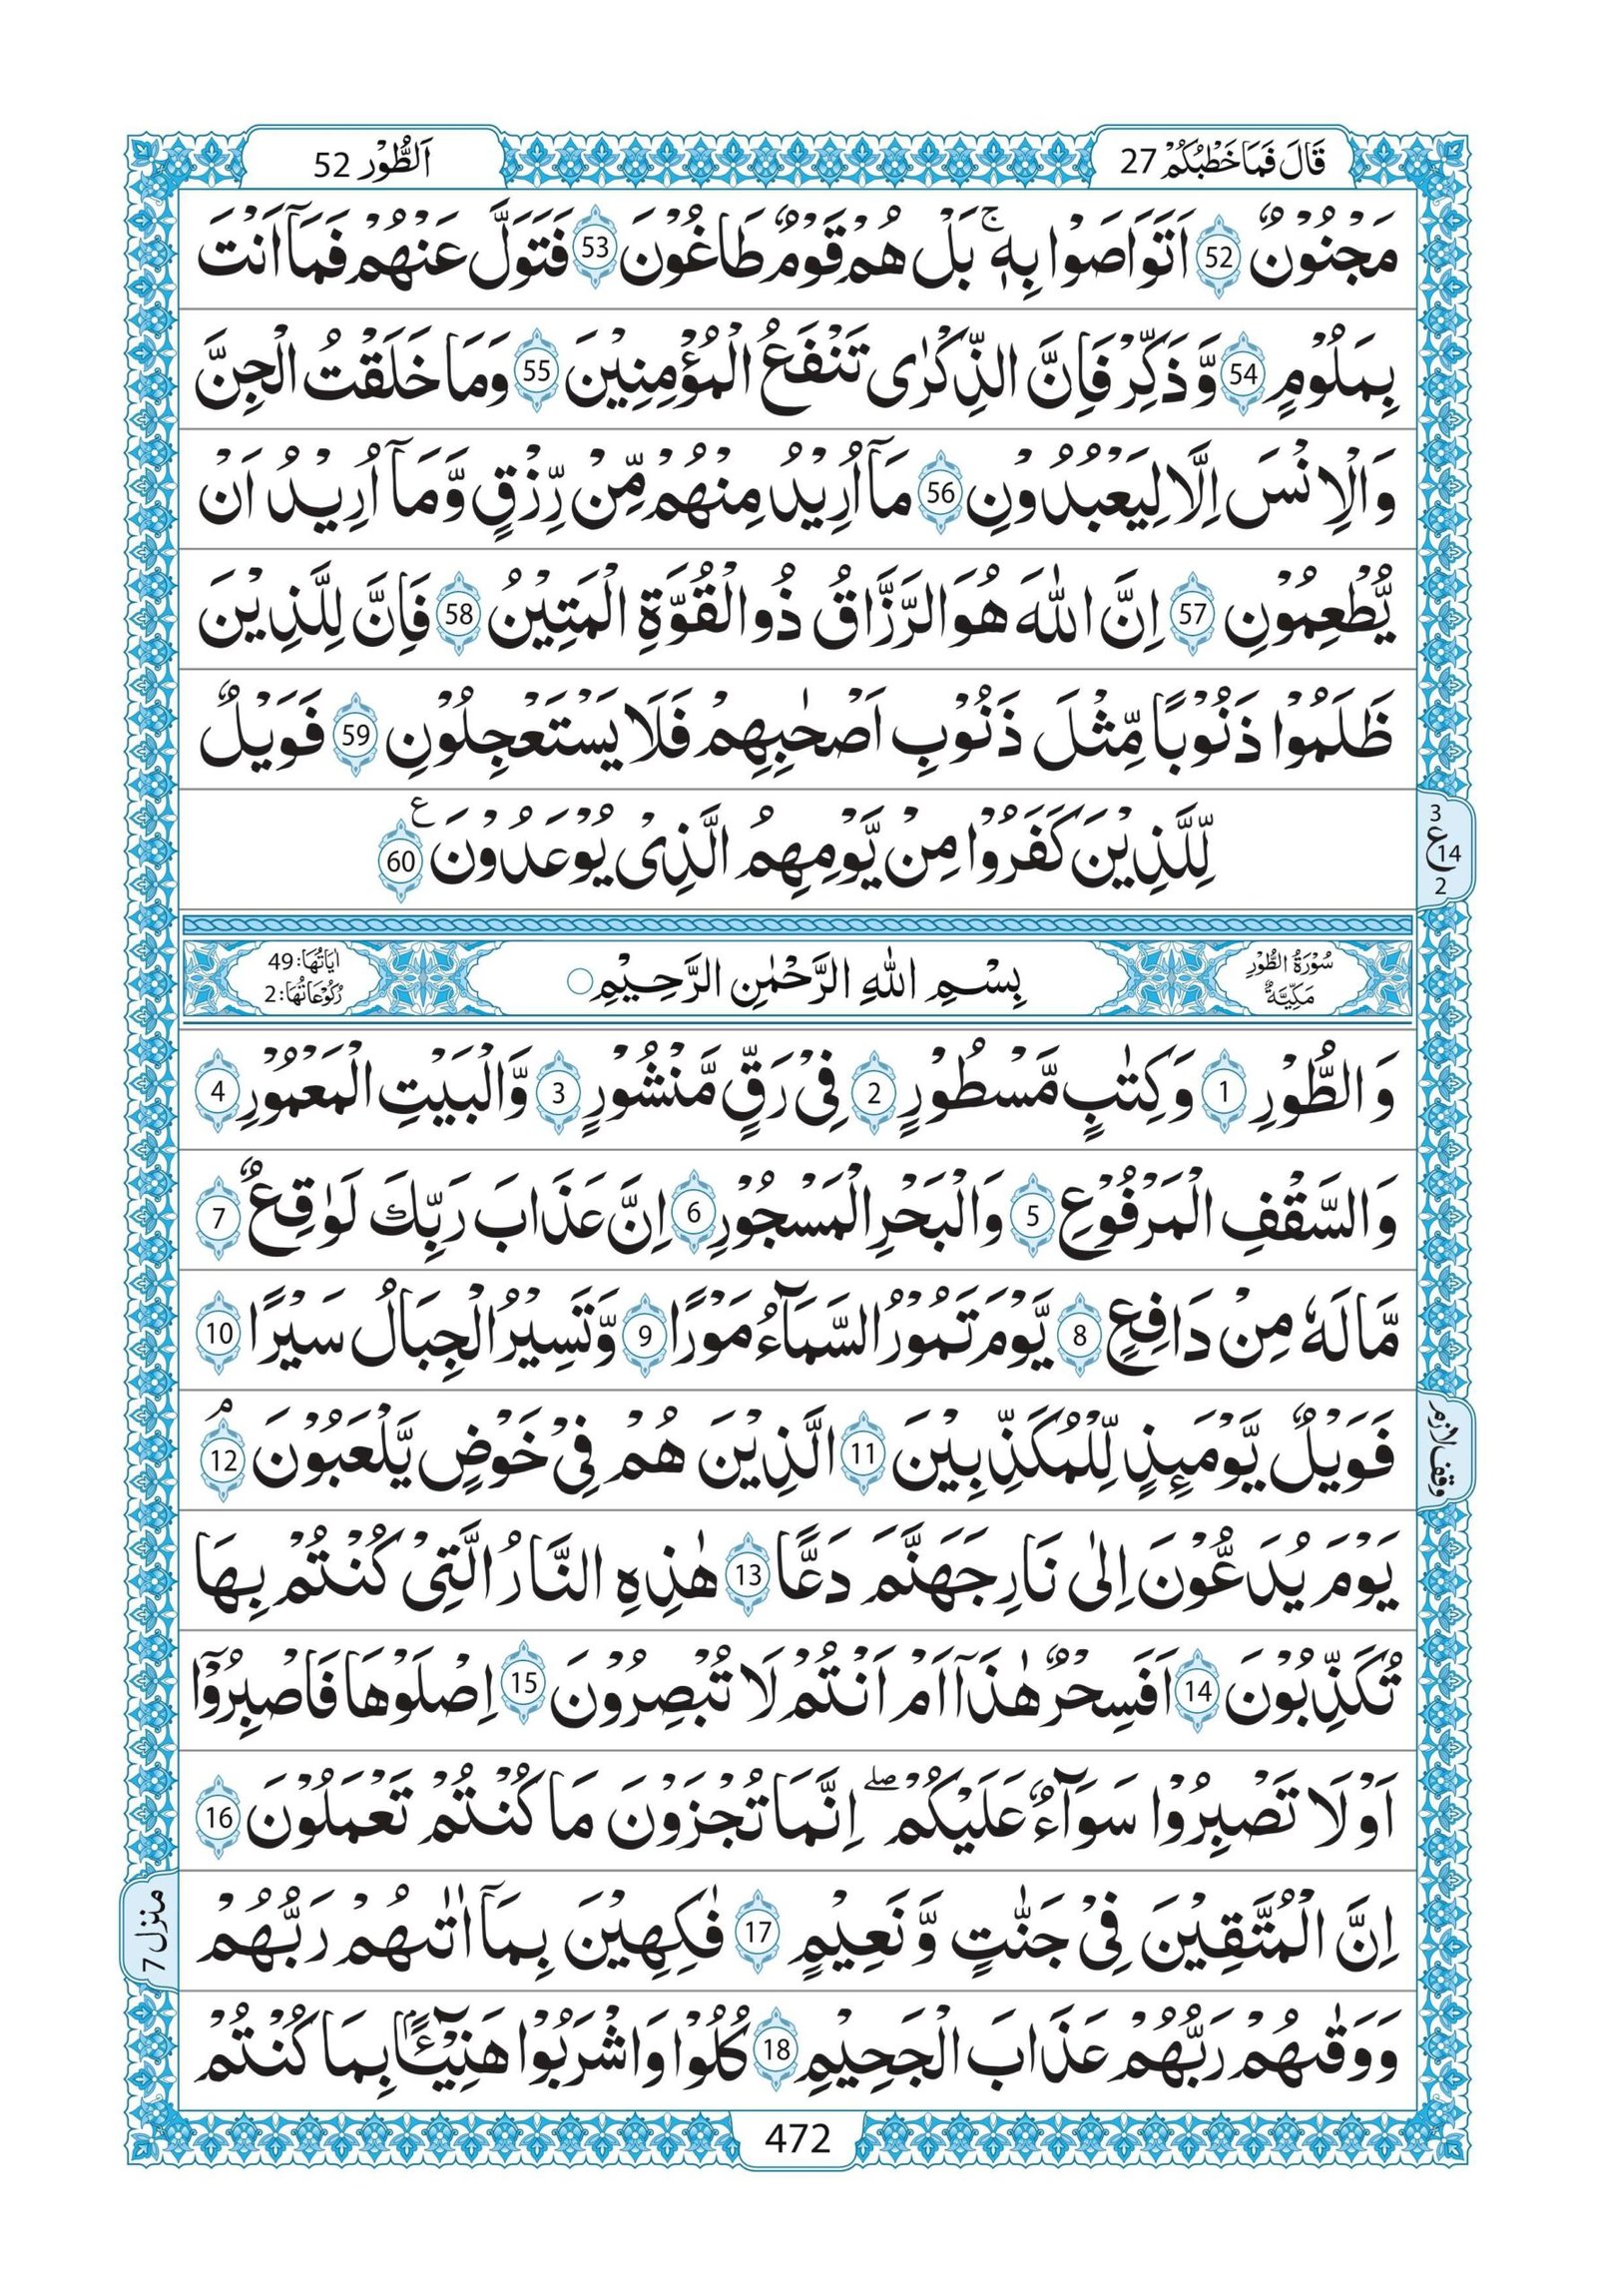 قَالَ فَمَا خَطْبُكُمْ 27
اَلطُّوْر 52
مَجْنُوْنٌ 52 اَتَوَاصَوْا بِهٖ ۚ بَلْ هُمْ قَوْمٌ طَاغُوْنَ 53 فَتَوَلَّ عَنْهُمْ فَمَاۤ اَنْتَ
بِمَلُوْمٍ 54 وَّذَكِّرْ فَاِنَّ الذِّكْرٰى تَنْفَعُ الْمُؤْمِنِيْنَ 55 وَمَا خَلَقْتُ الْجِنَّ
وَالْاِنْسَ اِلَّا لِيَعْبُدُوْنِ 56 مَاۤ اُرِيْدُ مِنْهُمْ مِّنْ رِّزْقٍ وَّمَاۤ اُرِيْدُ اَنْ
يُّطْعِمُوْنِ 57 اِنَّ اللّٰهَ هُوَ الرَّزَّاقُ ذُو الْقُوَّةِ الْمَتِيْنُ 58 فَاِنَّ لِلَّذِيْنَ
ظَلَمُوْا ذَنُوْبًا مِّثْلَ ذَنُوْبِ اَصْحٰبِهِمْ فَلَا يَسْتَعْجِلُوْنِ 59 فَوَيْلٌ
لِّلَّذِيْنَ كَفَرُوْا مِنْ يَّوْمِهِمُ الَّذِىْ يُوْعَدُوْنَ ع 60
3
ع 14
2
سُوْرَةُ الطُّوْرِ
مَكِّيَّةٌ
بِسْمِ اللّٰهِ الرَّحْمٰنِ الرَّحِيْمِ
اٰيَاتُهَا: 49
رُكُوْعَاتُهَا: 2
وَالطُّوْرِ 1 وَكِتٰبٍ مَّسْطُوْرٍ 2 فِىْ رَقٍّ مَّنْشُوْرٍ 3 وَّالْبَيْتِ الْمَعْمُوْرِ 4
وَالسَّقْفِ الْمَرْفُوْعِ 5 وَالْبَحْرِ الْمَسْجُوْرِ 6 اِنَّ عَذَابَ رَبِّكَ لَوٰقِعٌ 7
مَّا لَهٗ مِنْ دَافِعٍ 8 يَّوْمَ تَمُوْرُ السَّمَآءُ مَوْرًا 9 وَّتَسِيْرُ الْجِبَالُ سَيْرًا 10
فَوَيْلٌ يَّوْمَئِذٍ لِّلْمُكَذِّبِيْنَ 11 الَّذِيْنَ هُمْ فِىْ خَوْضٍ يَّلْعَبُوْنَ ۘ 12
وقف لازم
يَوْمَ يُدَعُّوْنَ اِلٰى نَارِ جَهَنَّمَ دَعًّا 13 هٰذِهِ النَّارُ الَّتِىْ كُنْتُمْ بِهَا
تُكَذِّبُوْنَ 14 اَفَسِحْرٌ هٰذَاۤ اَمْ اَنْتُمْ لَا تُبْصِرُوْنَ 15 اِصْلَوْهَا فَاصْبِرُوْۤا
اَوْ لَا تَصْبِرُوْا سَوَآءٌ عَلَيْكُمْ ۖ اِنَّمَا تُجْزَوْنَ مَا كُنْتُمْ تَعْمَلُوْنَ 16
اِنَّ الْمُتَّقِيْنَ فِىْ جَنّٰتٍ وَّنَعِيْمٍ 17 فٰكِهِيْنَ بِمَاۤ اٰتٰىهُمْ رَبُّهُمْ
منزل 7
وَوَقٰىهُمْ رَبُّهُمْ عَذَابَ الْجَحِيْمِ 18 كُلُوْا وَاشْرَبُوْا هَنِيْٓـئًا ۢ بِمَا كُنْتُمْ
472